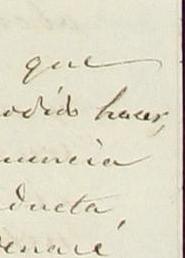 que
odido hacer,
nuncia
ducta,
denaré